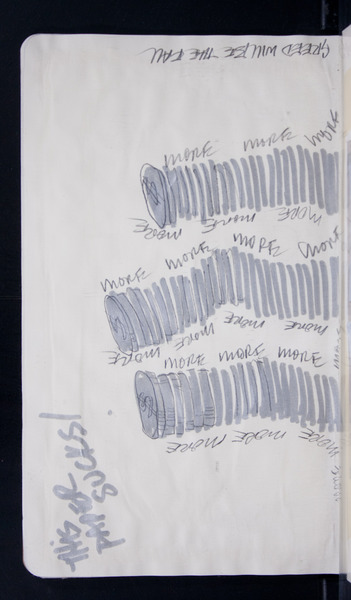 GREED WILL BE THE FALL
MORE MORE MORE
MORE MORE MORE
MORE MORE MORE MORE
MORE MORE MORE MORE
MORE MORE MORE
MORE MORE MORE MORE
THIS PAPER
SUCKS!